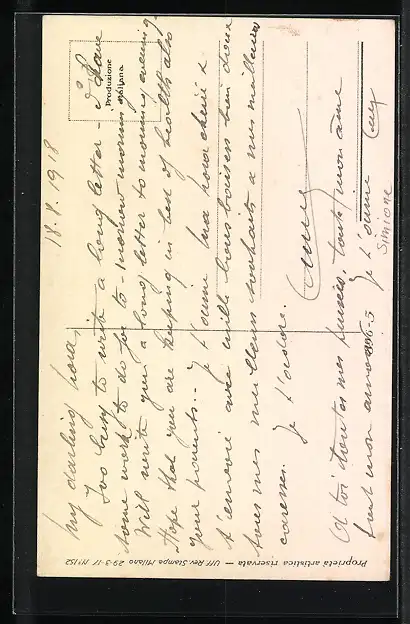 18.8.1918
My darling Nora,
Too busy to write a long letter - I have
some work to do for to-morrow morning
Will write you a long letter to morrow evening.
Hope that you are keeping in best of health also
your parents.. Je t'aime ma Nora chérie &
t'envoie avec mille bons baisers bien doux
tous mes meilleurs souhaits & mes meilleures
caresses. Je t'adore.
A toi toutes mes pensées, toute mon âme
tout mon amour. Je t'aime
Simione
Produzione
italiana
396-5
Proprietà artistica riservata — Uff. Rev. Stampa Milano 29-3-17 N° 152